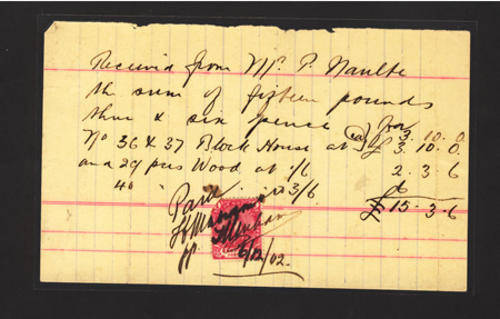 Received from Mr. P. Naulte
the sum of fifteen pounds
three & six pence for
No 36 & 37 Block House at (ea) £ 3. 10. 0
3. 10. 0
and 29 pcs Wood at 1/6 2. 3. 6
40 " 3/6 6
£ 15. 3. 6
Paid
6/12/02.